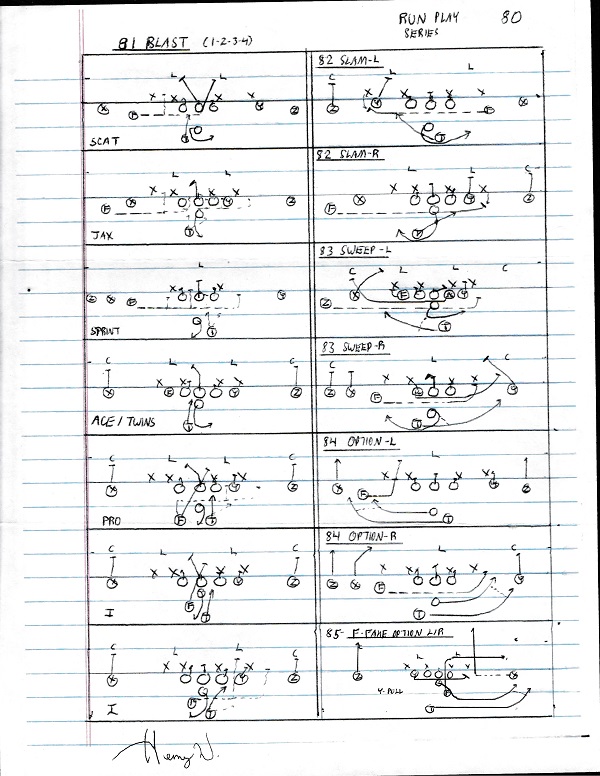 RUN PLAY 80
SERIES
81 BLAST (1-2-3-4)
SCAT
JAX
SPRINT
ACE / TWINS
PRO
I
I
82 SLAM-L
82 SLAM-R
83 SWEEP-L
83 SWEEP-R
84 OPTION-L
84 OPTION-R
85- F-FAKE OPTION L/R
Y-PULL